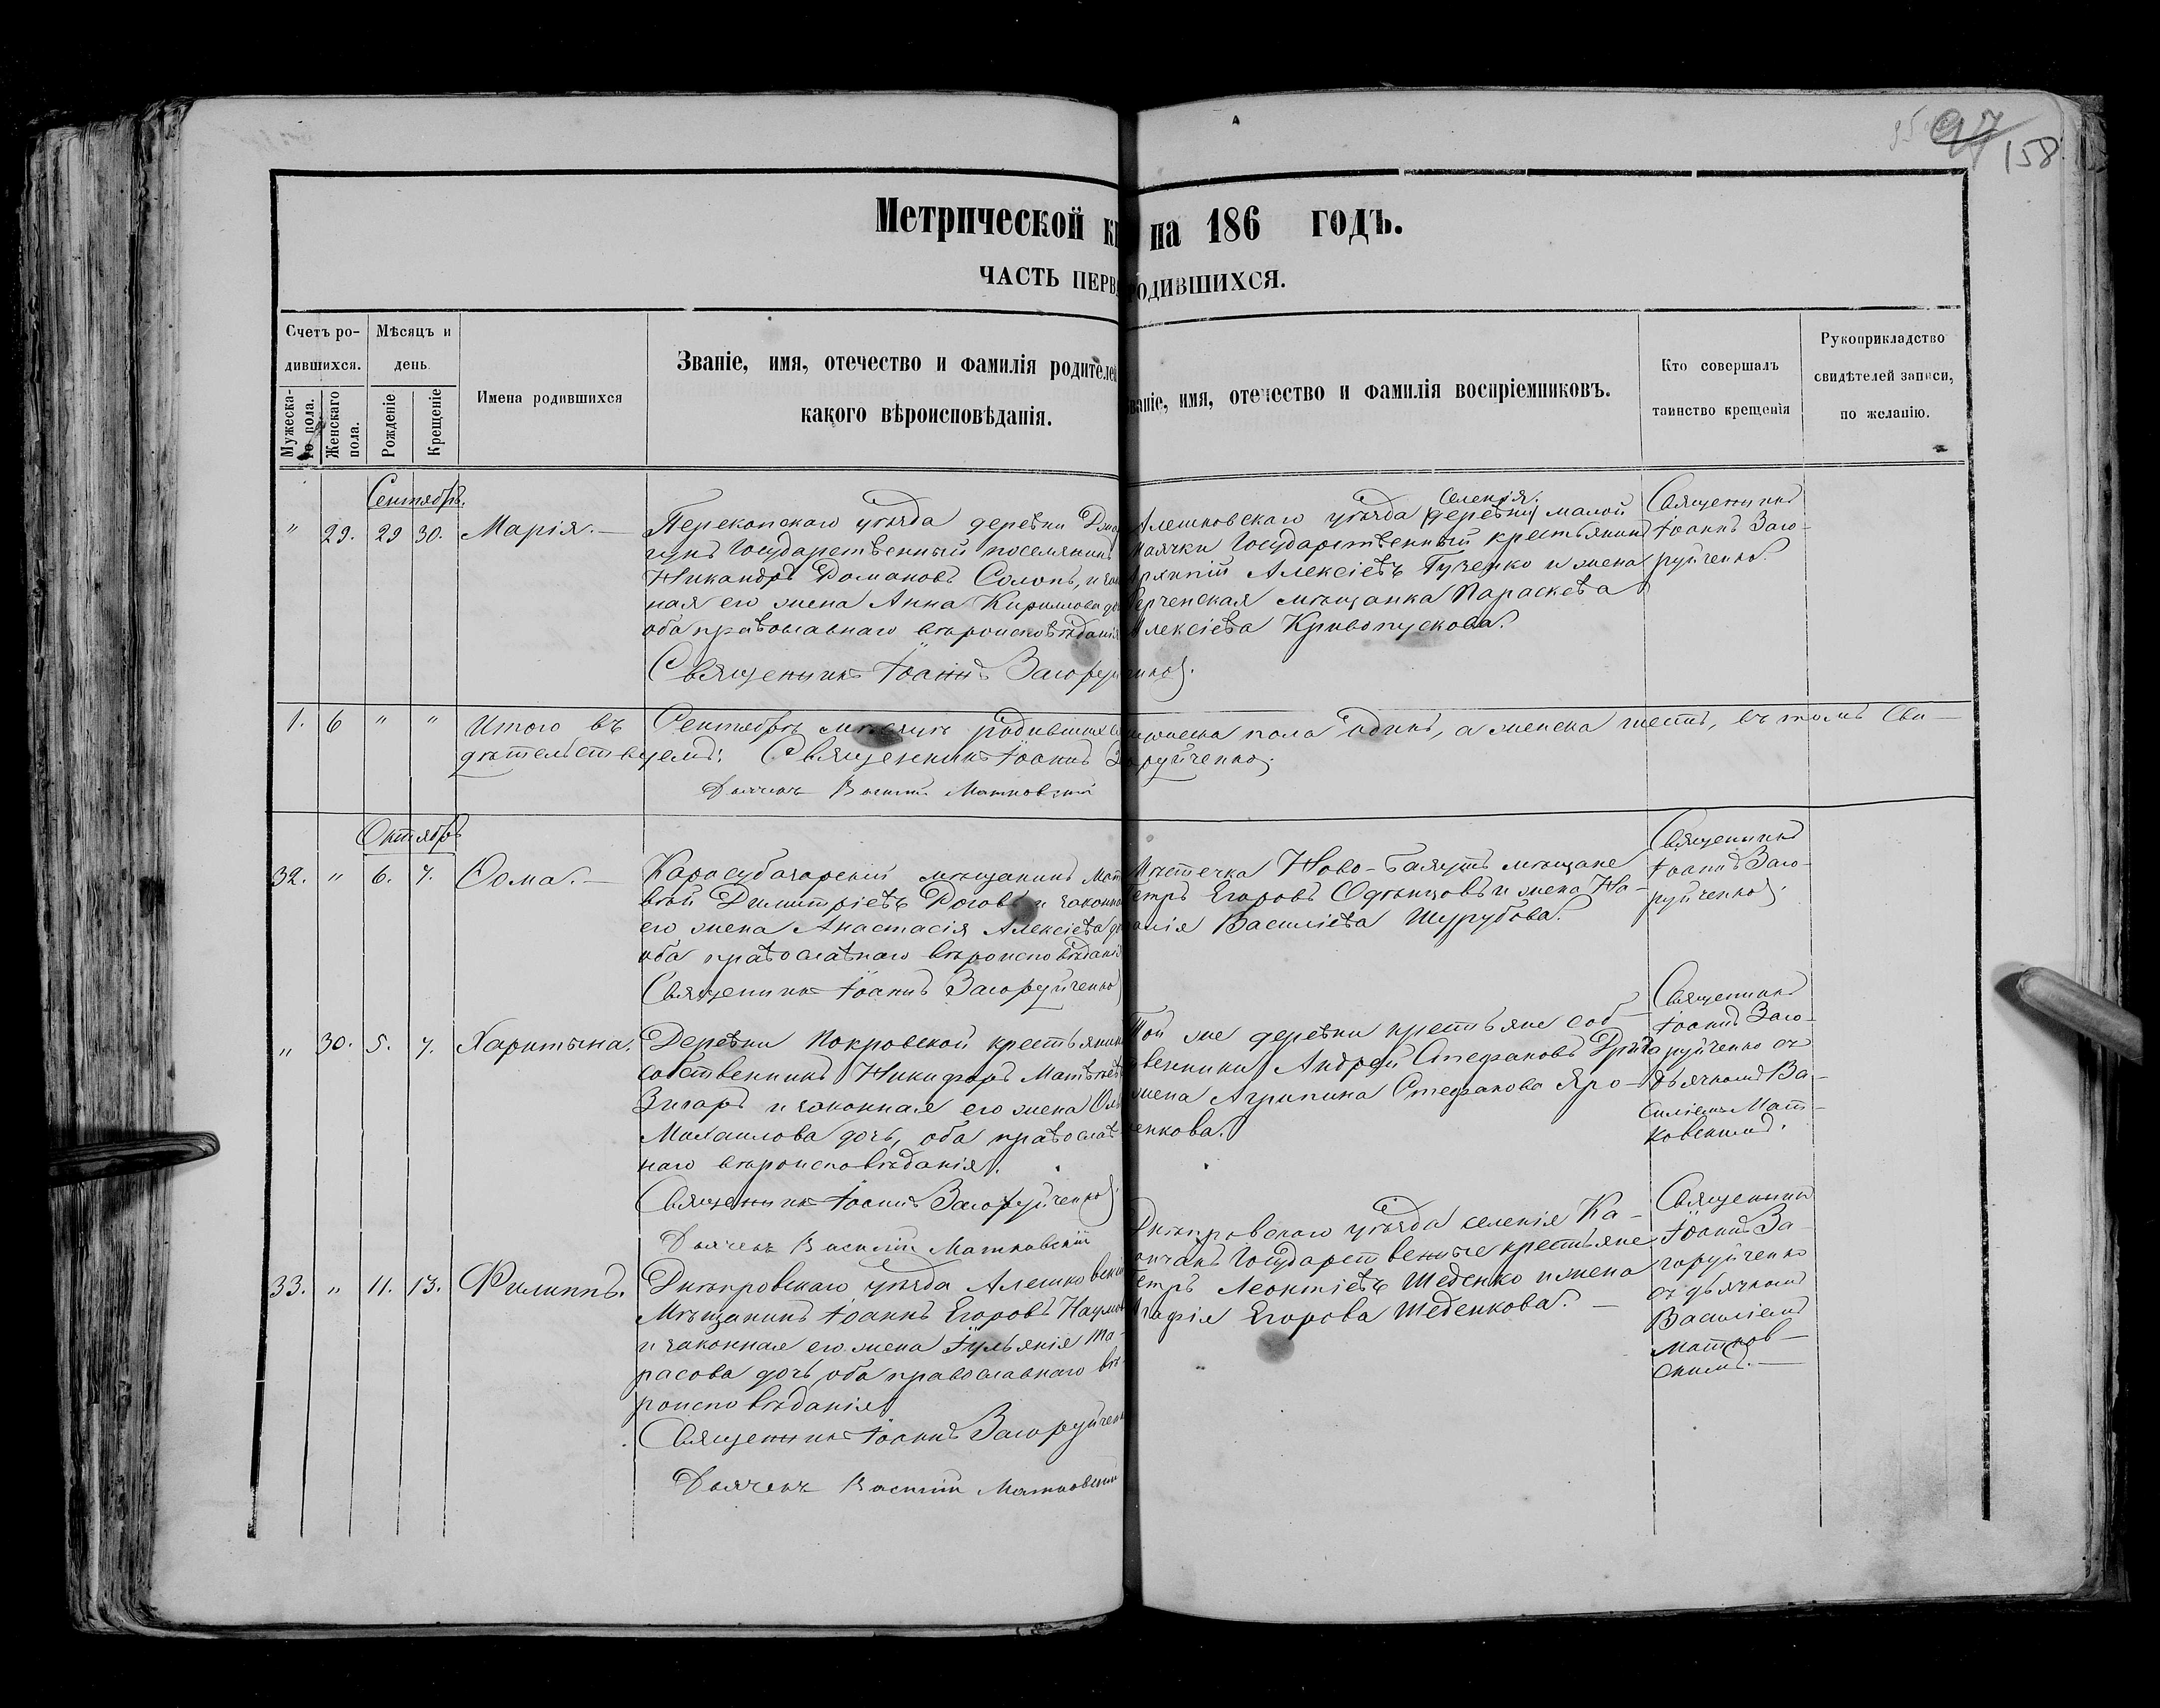 97
158
Метрической кн на 186 годъ.
ЧАСТЬ ПЕРВ РОДИВШИХСЯ.
Счетъ ро-
дившихся.
Мужеска-
го пола.
Женскаго
пола.
Мѣсяцъ и
день.
Рожденіе
Крещеніе
Имена родившихся
Званіе, имя, отечество и фамилія родителей
какого вѣроисповѣданія.
ваніе, имя, отечество и фамилія воспріемниковъ.
Кто совершалъ
таинство крещенія
Рукоприкладство
свидѣтелей записи,
по желанію.
Сентябрь.
" 29. 29 30. Марія.—
Перекопскаго уѣзда деревни
Государственный поселянинъ
Никандръ Романовъ и
ная его жена Анна Кирилова
оба православнаго вѣроисповѣданія
Священникъ Іоаннъ Загоруйченко.
Алешковскаго уѣзда (деревни) селенія. малой
Маячки Государственный крестьянинъ
Алексіевъ Гузенко и жена
Керченская мѣщанка Параскева
Алексіева Кривопускова.
Священникъ
Іоаннъ Заго-
руйченко.
1. 6 " " Итого въ Сентябрѣ мѣсяцѣ родившихся мужеска пола одинъ, а женска шесть, въ томъ сви-
дѣтельствуемъ: Священникъ Іоаннъ Загоруйченко.
Дьячекъ Василій Матковскій
Октябрь
32. " 6. 7. Ѳома.—
Карасубазарскій мѣщанинъ Мат
вѣй Димитріевъ Рогов и законная
его жена Анастасія Алексіева
оба православнаго вѣроисповѣданія
Священникъ Іоаннъ Загоруйченко
Мѣстечка Ново- мѣщане
Петръ Егоровъ Одѣнцовъ и жена На-
талія Василіева Шурубова.
Священникъ
Іоаннъ Заго-
руйченко.
" 30. 5. 7. Харитына.
Деревни Покровской крестьянинъ
собственникъ Никифоръ Матвѣевъ
и законная его жена
Михаилова дочь, оба православ
наго вѣроисповѣданія.
Священникъ Іоаннъ Загоруйченко.
Дьячекъ Василій Матковскій
Той же деревни крестьяне соб-
ственники Андрей Стефановъ
жена Агрипина Стефанова Яро-
енкова.
Священникъ
Іоаннъ Заго-
руйченко съ
дьячкомъ Ва-
силіемъ Мат-
ковскимъ.
33. " 11. 13. Филиппъ.
Днѣпровскаго уѣзда Алешковскій
Мѣщанинъ Іоаннъ Егоровъ
и законная его жена Іульянія Та-
расова дочь, оба православнаго вѣ-
роисповѣданія
Священникъ Іоаннъ Загоруйченко
Дьячекъ Василій Матковскій
Днѣпровскаго уѣзда селенія Ка-
Государственные крестьяне
Петръ Леонтіевъ Шеденко и жена
Агафія Егорова Шеденкова.—
Священникъ
Іоаннъ За-
горуйченко
съ дьячкомъ
Василіемъ
Матков-
скимъ.—